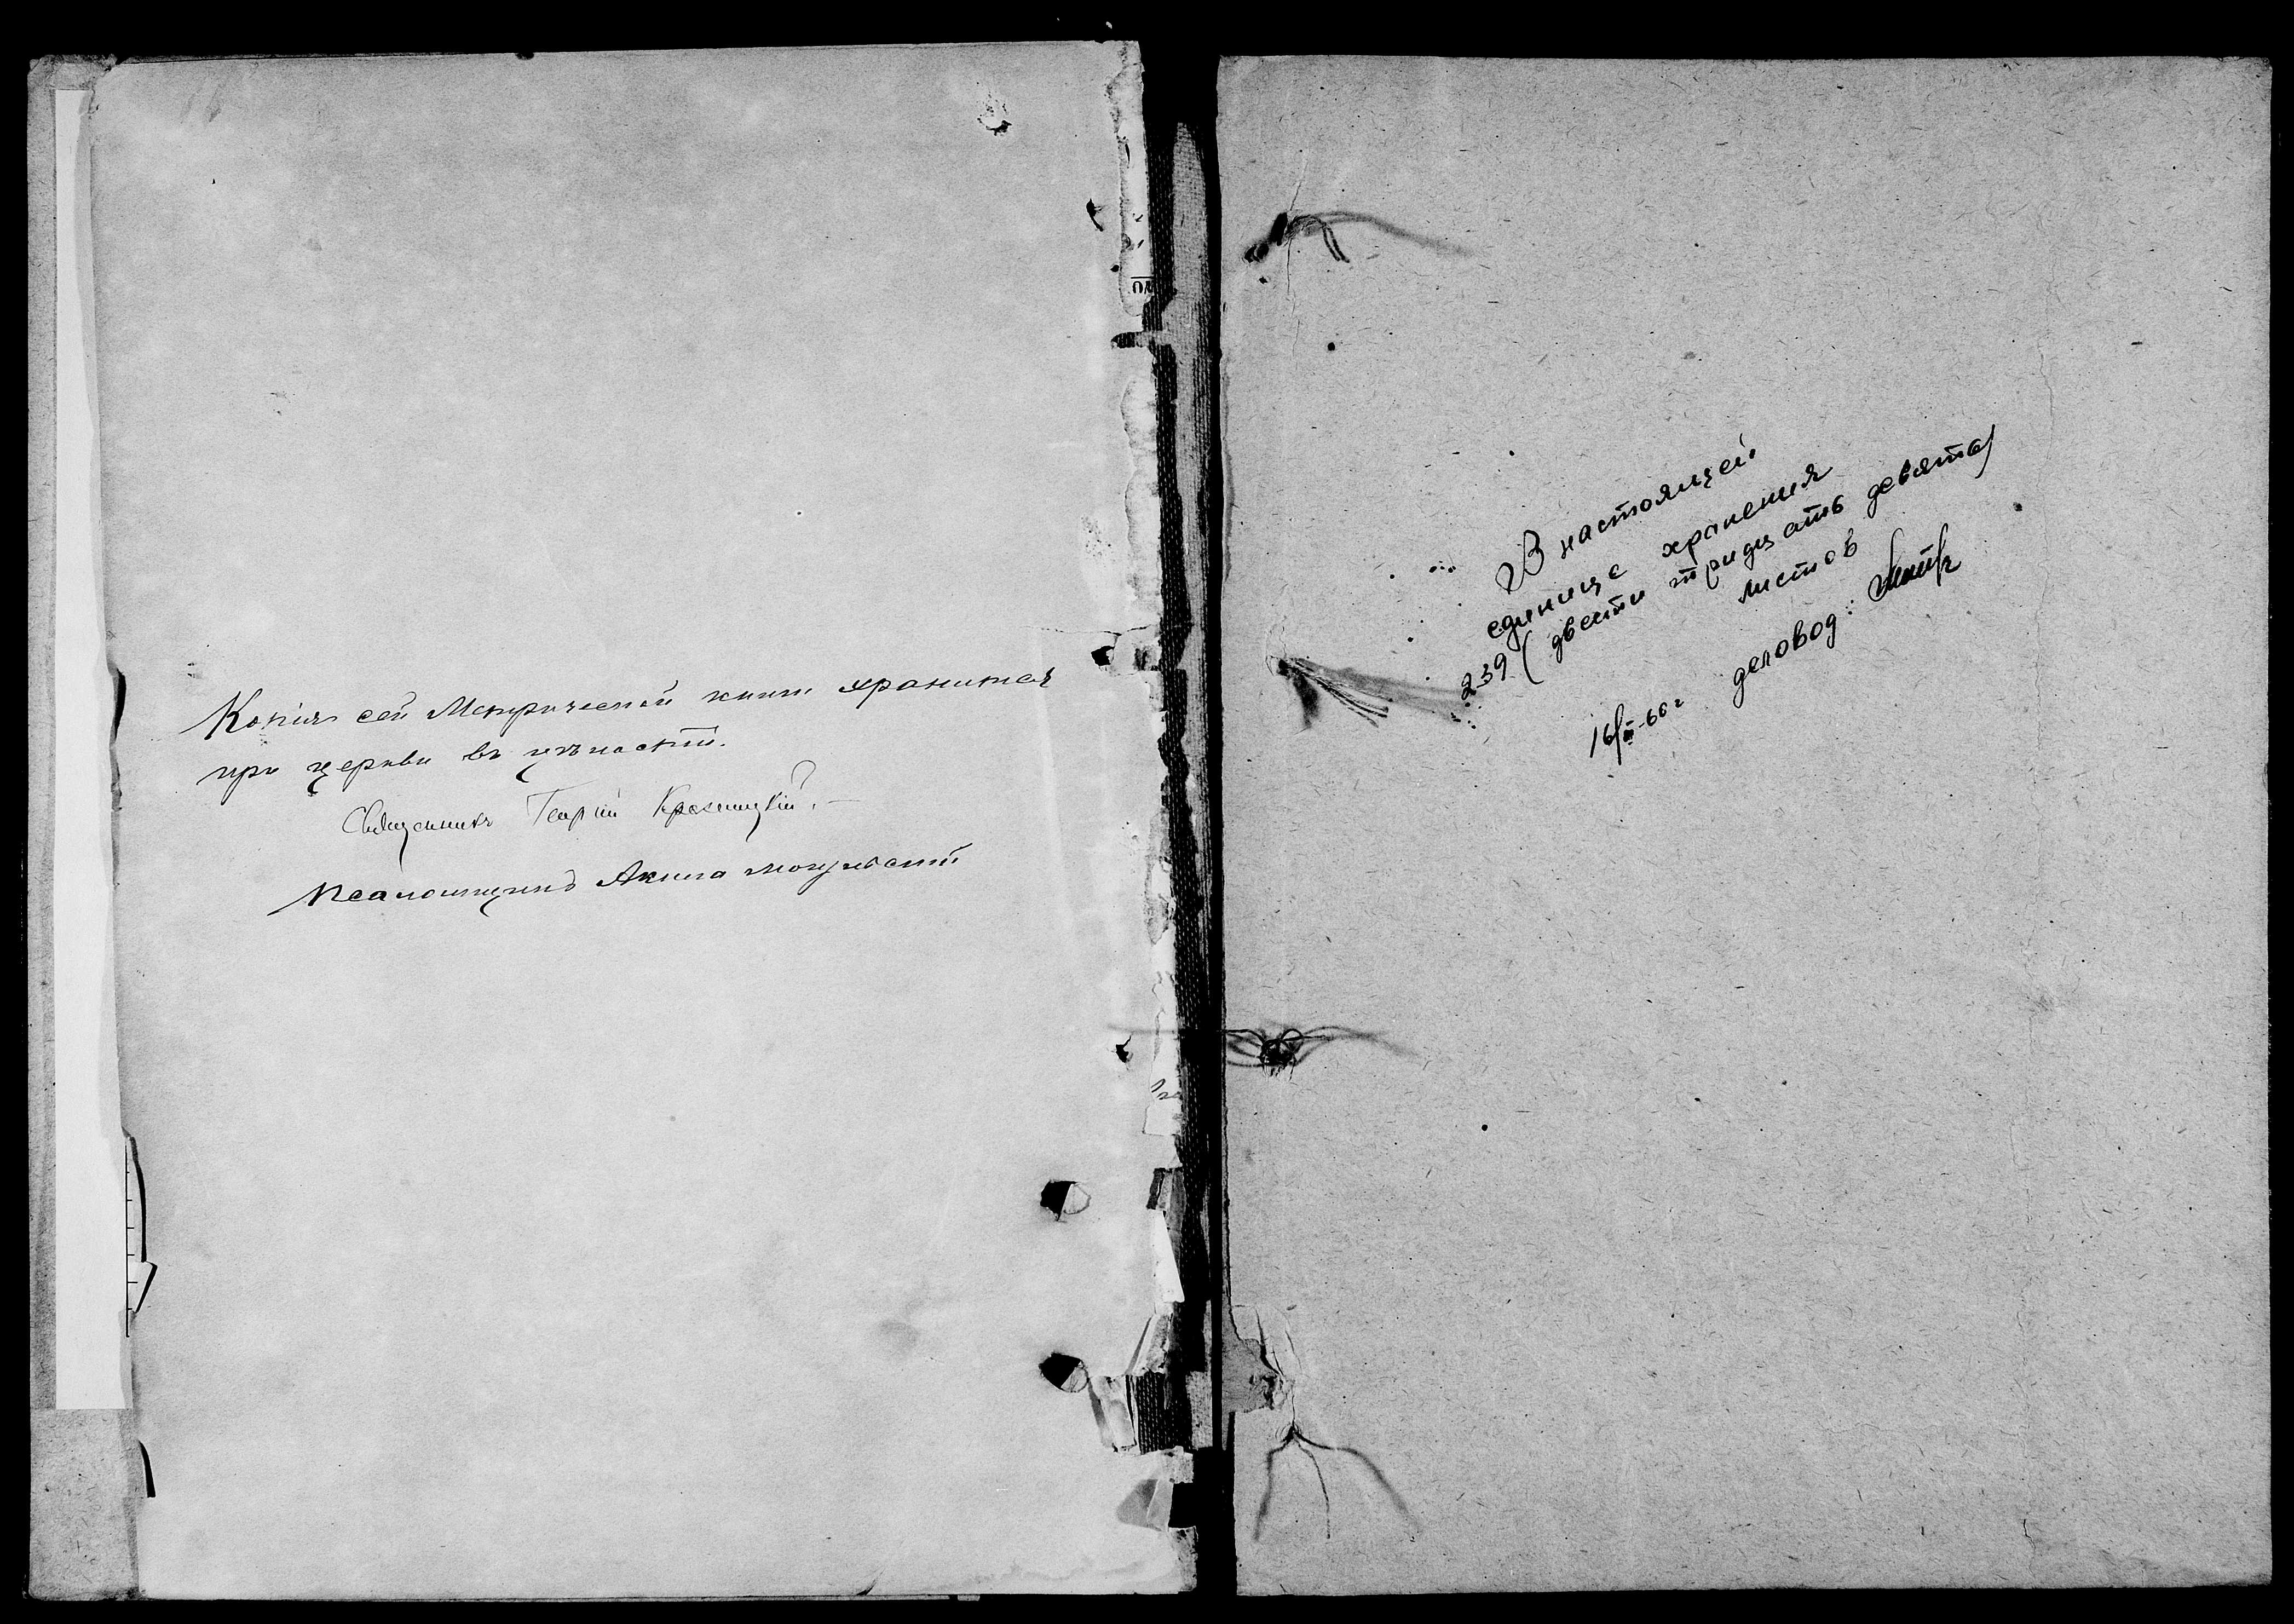 Копія сей Метрической книги хранится
при церкви въ цѣлости.
Священникъ Георгій
Псаломщикъ Акила
В настоящей
единице хранения
239 (двести тридцать девять)
листов
16/III-60 г деловод: